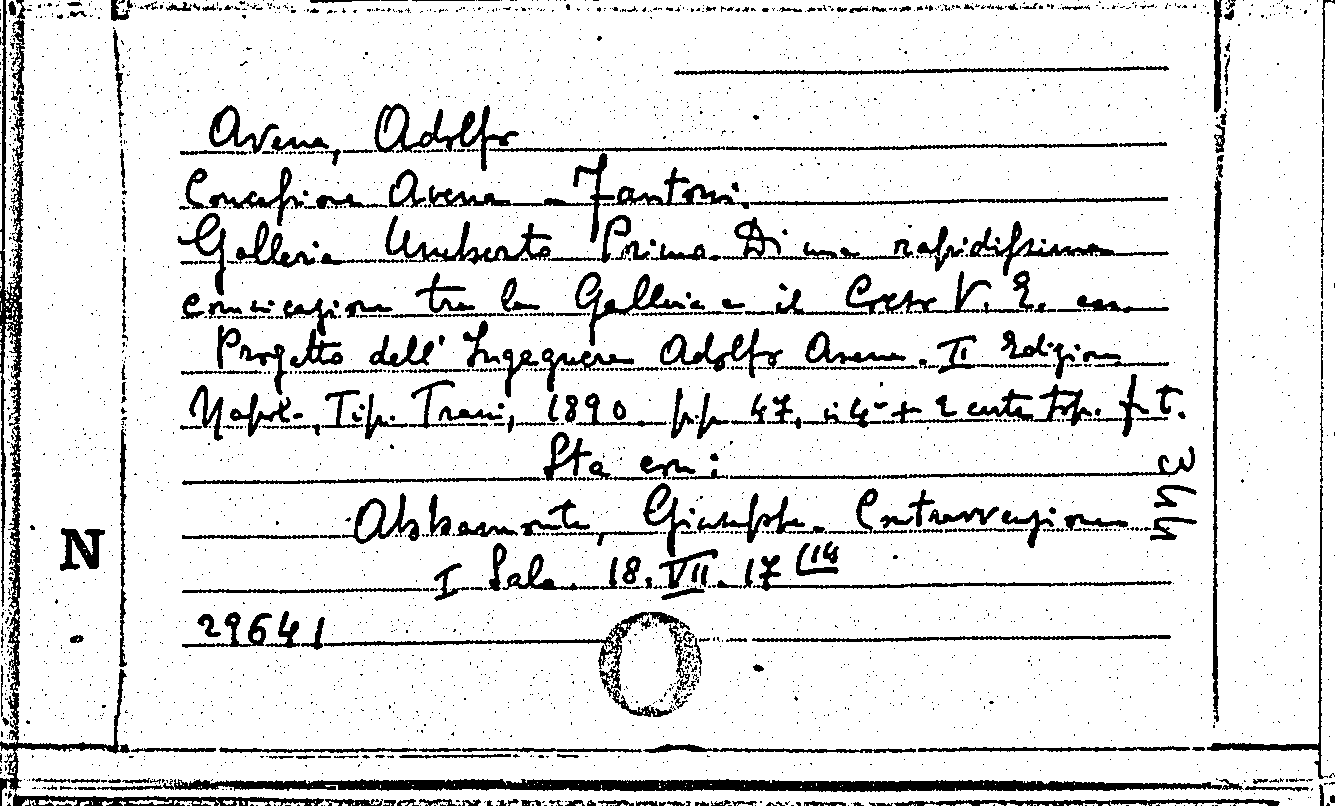 Avena, Adolfo
Concessione Avena - Fantoni.
Galleria Umberto Primo. Di una rapidissima
comunicazione tra la Galleria e il Corso V. E. ecc.
Progetto dell' Ingegnere Adolfo Avena. II Edizione
Napoli, Tip. Trani, 1890. pp. 47, in 4° + 2 carte top. f. t.
Sta con:
Abbamonte, Giuseppe. Contravvenzione
I Sala. 18. VII. 17 (14
29641
N